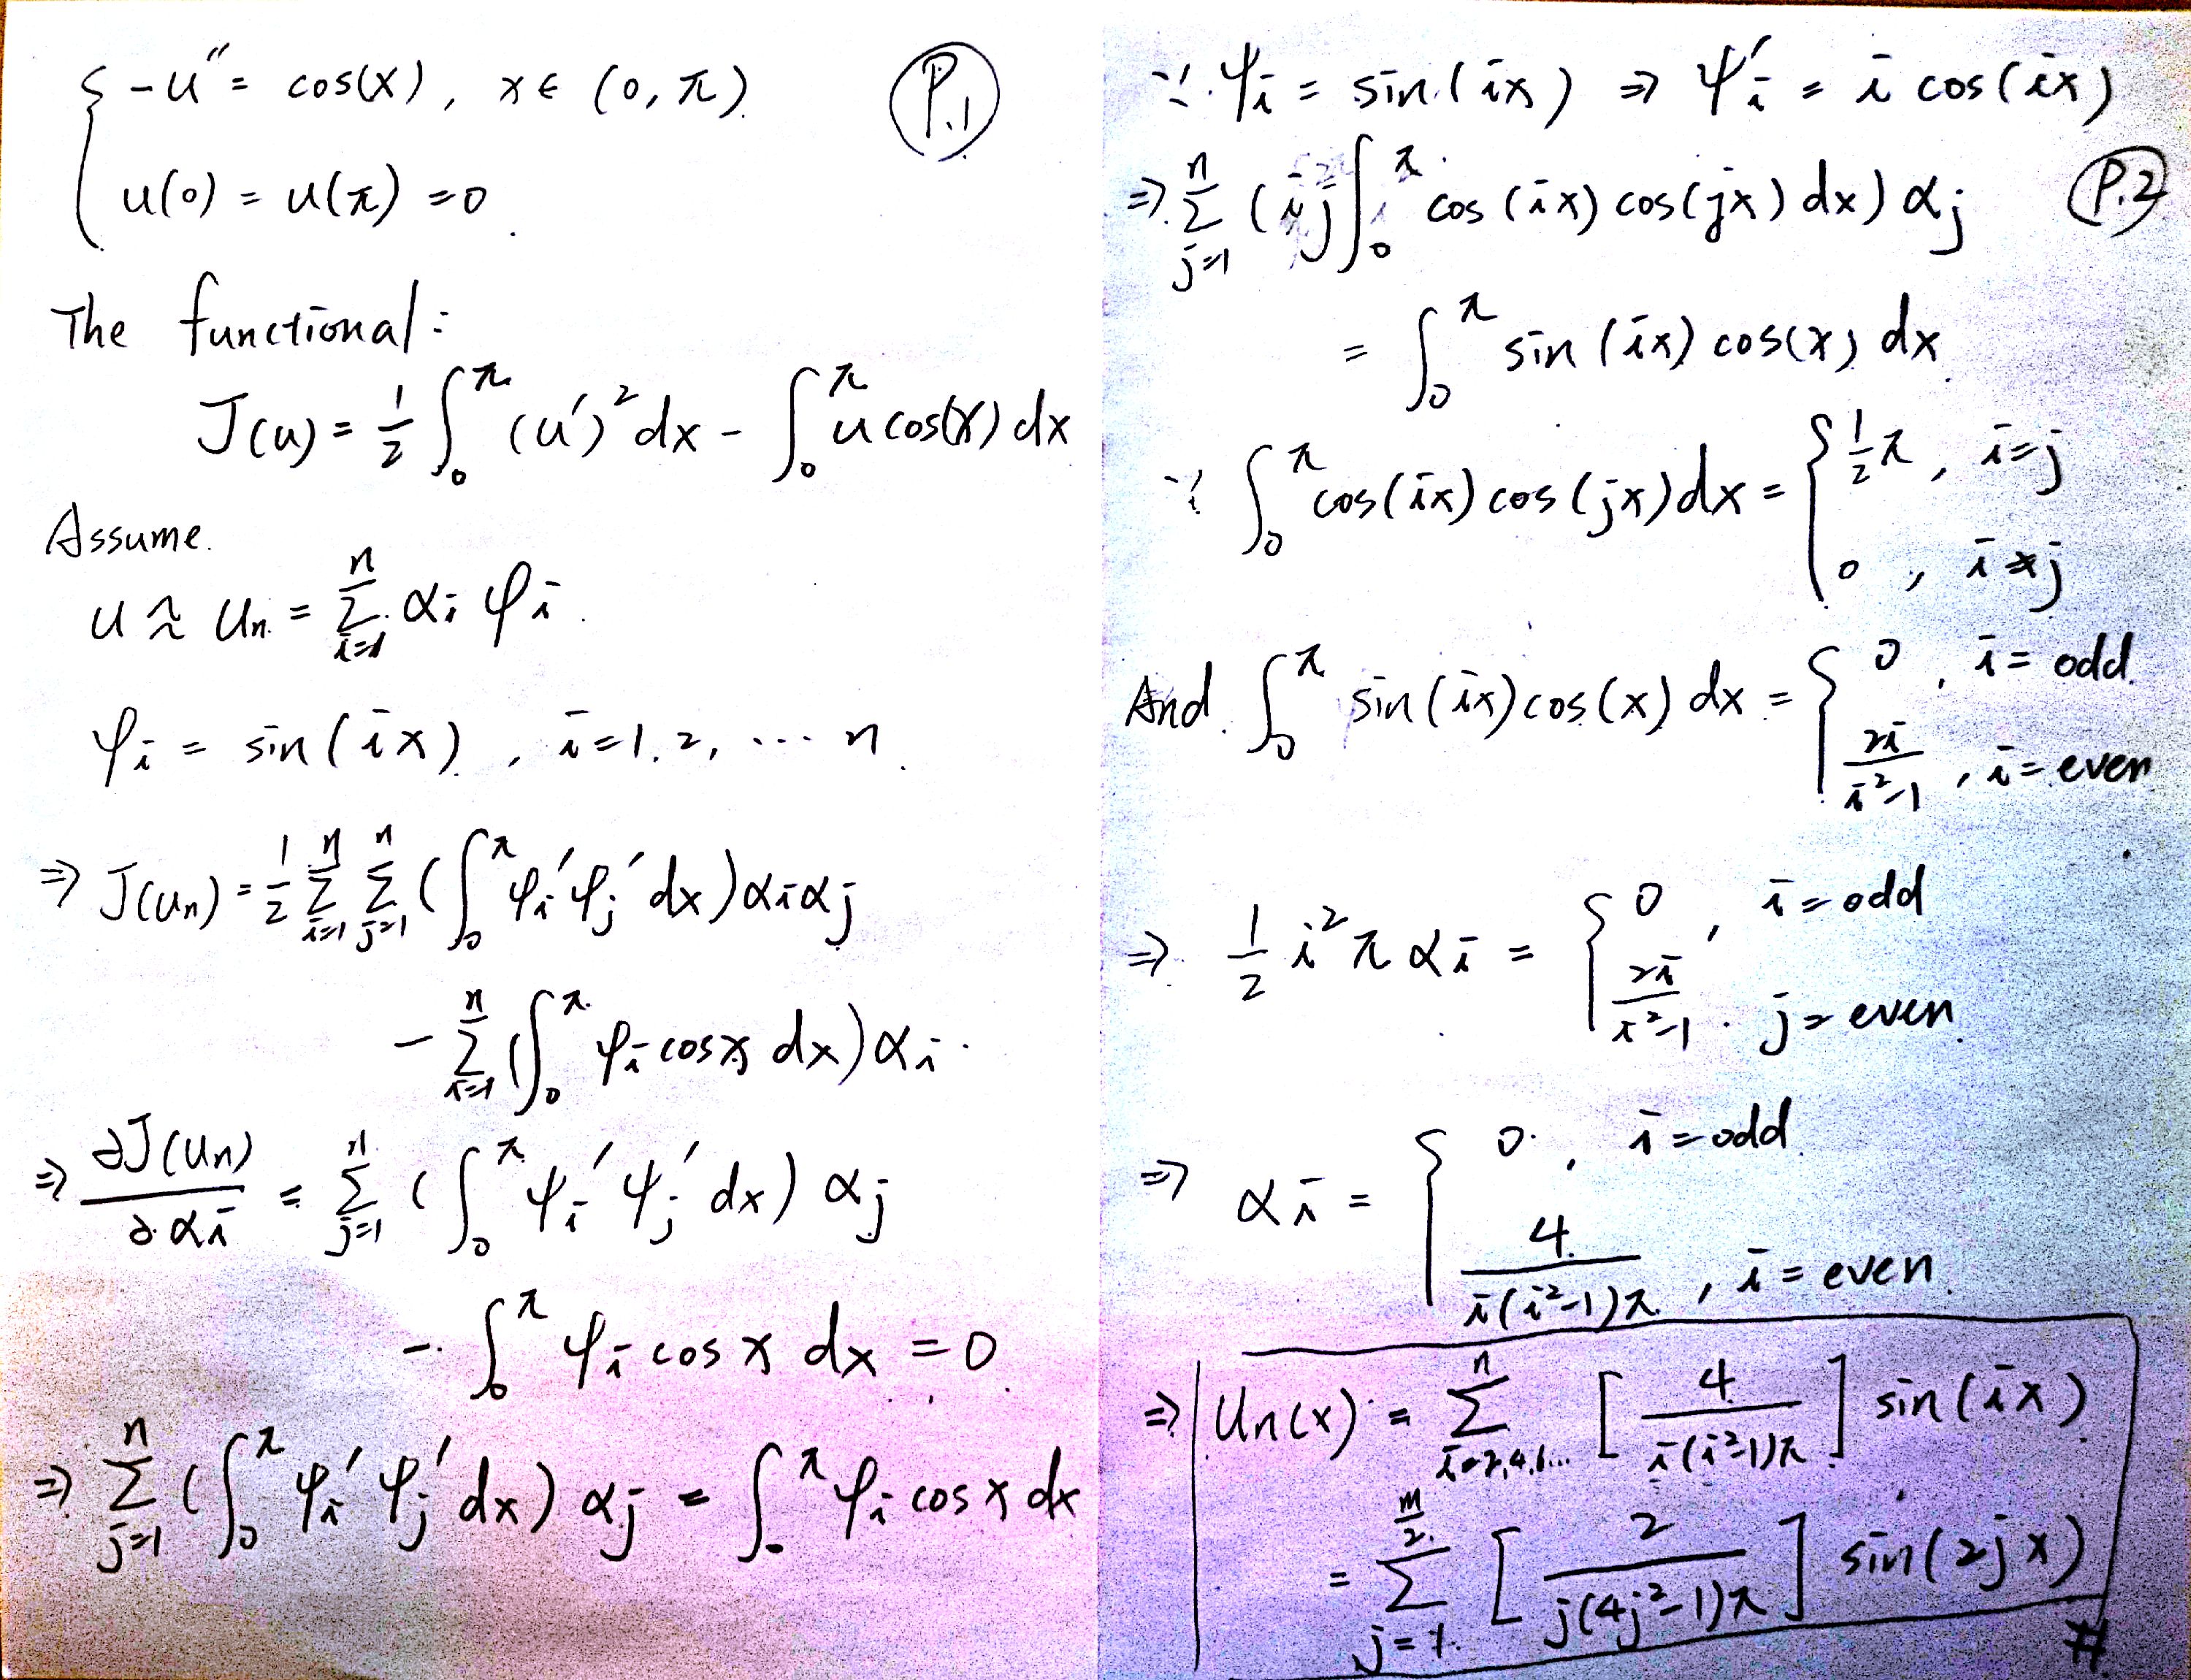 { -u'' = cos(x), x ∈ (0, π).
P.1
u(0) = u(π) = 0.
The functional:
J(u) = 1/2 ∫₀^π (u')² dx - ∫₀^π u cos(x) dx
Assume.
u ≈ uₙ = Σ_{i=1}^n αᵢ φᵢ.
φᵢ = sin(ix), i=1,2, ... n.
⇒ J(uₙ) = 1/2 Σ_{i=1}^n Σ_{j=1}^n (∫₀^π φᵢ' φⱼ' dx) αᵢ αⱼ
- Σ_{i=1}^n (∫₀^π φᵢ cos x dx) αᵢ.
⇒ ∂J(uₙ)/∂αᵢ = Σ_{j=1}^n (∫₀^π φᵢ' φⱼ' dx) αⱼ
- ∫₀^π φᵢ cos x dx = 0.
⇒ Σ_{j=1}^n (∫₀^π φᵢ' φⱼ' dx) αⱼ = ∫₀^π φᵢ cos x dx
∵ φᵢ = sin(ix) ⇒ φ'ᵢ = i cos(ix)
P.2
⇒ Σ_{j=1}^n (ij ∫₀^π cos(ix) cos(jx) dx) αⱼ
= ∫₀^π sin(ix) cos(x) dx.
∵ ∫₀^π cos(ix) cos(jx) dx = { 1/2 π, i=j
0, i≠j
And ∫₀^π sin(ix) cos(x) dx = { 0, i = odd.
2i/(i²-1), i = even
⇒ 1/2 i² π αᵢ = { 0, i = odd
2i/(i²-1). j = even.
⇒ αᵢ = { 0, i = odd.
4/(i(i²-1)π), i = even.
⇒ Uₙ(x) = Σ_{i=2,4,6...}^n [4/(i(i²-1)π)] sin(ix)
= Σ_{j=1}^{m/2} [2/(j(4j²-1)π)] sin(2jx)
#